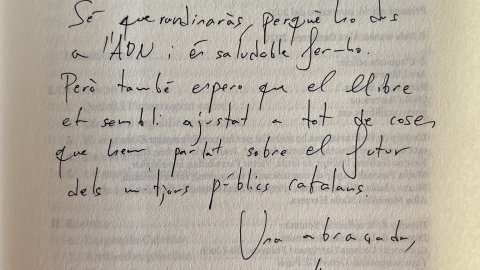 Sé que rondinaràs, perquè ho dus
a l'ADN i és saludable fer-ho.
Però també espero que el llibre
et sembli ajustat a tot de coses
que hem parlat sobre el futur
dels mitjans públics catalans.
Una abraçada,